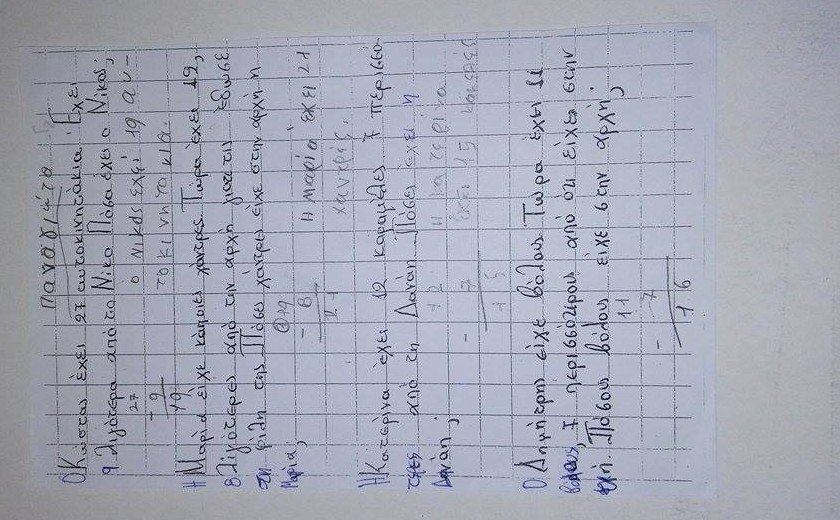 Παναγιώτα
Ο Κώστας έχει 27 αυτοκινητάκια. Έχει
9 λιγότερα από το Νίκο. Πόσα έχει ο Νίκος;
27
- 9
19
ο Νίκος έχει 19 αυ-
τοκινητακια.
Η Μαρία είχε κάποιες χάντρες. Τώρα έχει 19,
8 λιγότερες από την αρχή γιατί τις έδωσε
στη φίλη της. Πόσες χάντρες είχε στην αρχή η
Μαρία;
19
- 8
Η Μαρία έχει 21
χαντρές.
Η Κατερίνα έχει 12 καραμέλες, 7 περισσό-
τερες από τη Δανάη. Πόσες έχει η
Δανάη;
12
- 7
15
Η κατερίνα
έχει 15
Ο Δημήτρης είχε βόλους. Τώρα έχει 11
βόλους, 7 περισσότερους από ότι είχε στην
αρχή. Πόσους βόλους είχε στην αρχή;
11
- 7
16